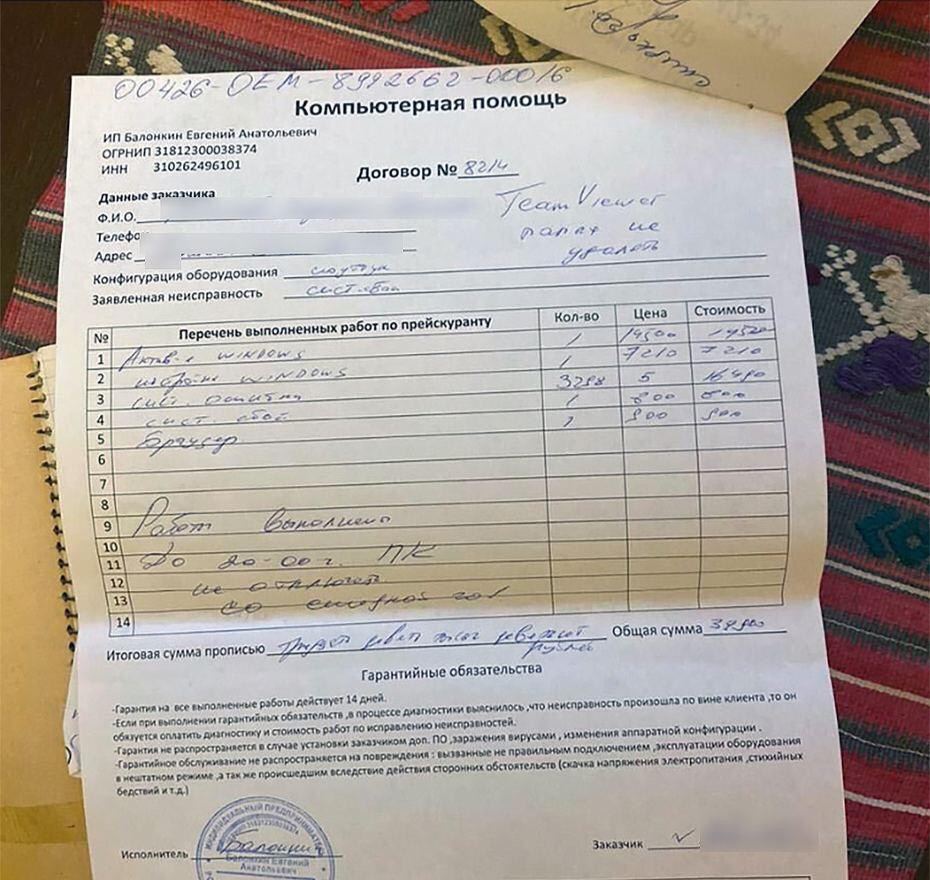 00426-OEM-8992662-00016
Компьютерная помощь
ИП Балонкин Евгений Анатольевич
ОГРНИП 31812300038374
ИНН 310262496101
Договор № 8214
Данные заказчика
Ф.И.О.
TeamViewer
папку не
удалять
Телефо
Адрес
Конфигурация оборудования ноутбук
Заявленная неисправность сист. сбой
№ Перечень выполненных работ по прейскуранту Кол-во Цена Стоимость
1 Актив-я WINDOWS 1 14500 14500
2 WINDOWS 1 7210 7210
3 сист. ошибки 3298 5 16490
4 сист. сбой 1 800 800
5 браузер 1 900 900
6
7
8
9 Работы выполнены
10
11 До 20-00 ПК
12 не отключать
13
14
Итоговая сумма прописью рублей Общая сумма
Гарантийные обязательства
-Гарантия на все выполненные работы действует 14 дней.
-Если при выполнении гарантийных обязательств ,в процессе диагностики выяснилось ,что неисправность произошла по вине клиента ,то он
обязуется оплатить диагностику и стоимость работ по исправлению неисправностей.
-Гарантия не распространяется в случае установки заказчиком доп. ПО ,заражения вирусами , изменения аппаратной конфигурации .
-Гарантийное обслуживание не распространяется на повреждения : вызванные не правильным подключением ,эксплуатации оборудования
в нештатном режиме ,а так же происшедшим вследствие действия сторонних обстоятельств (скачка напряжения электропитания ,стихийных
бедствий и т.д.)
ИНДИВИДУАЛЬНЫЙ ПРЕДПРИНИМАТЕЛЬ
Исполнитель Балонкин
Заказчик
Балонкин Евгений
Анатольевич